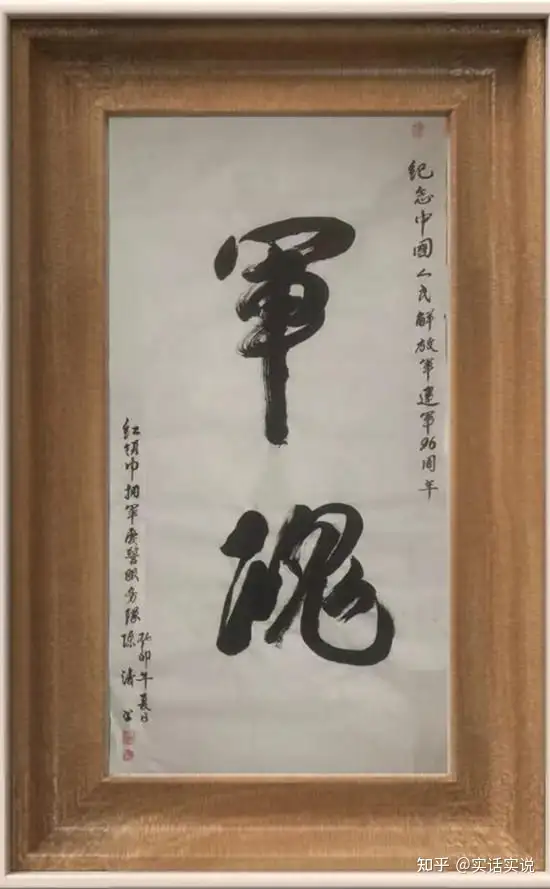 纪念中國人民解放军建军96周年
軍魂
红领巾拥军爱警服务隊
癸卯年夏日
涛书
知乎 @实话实说